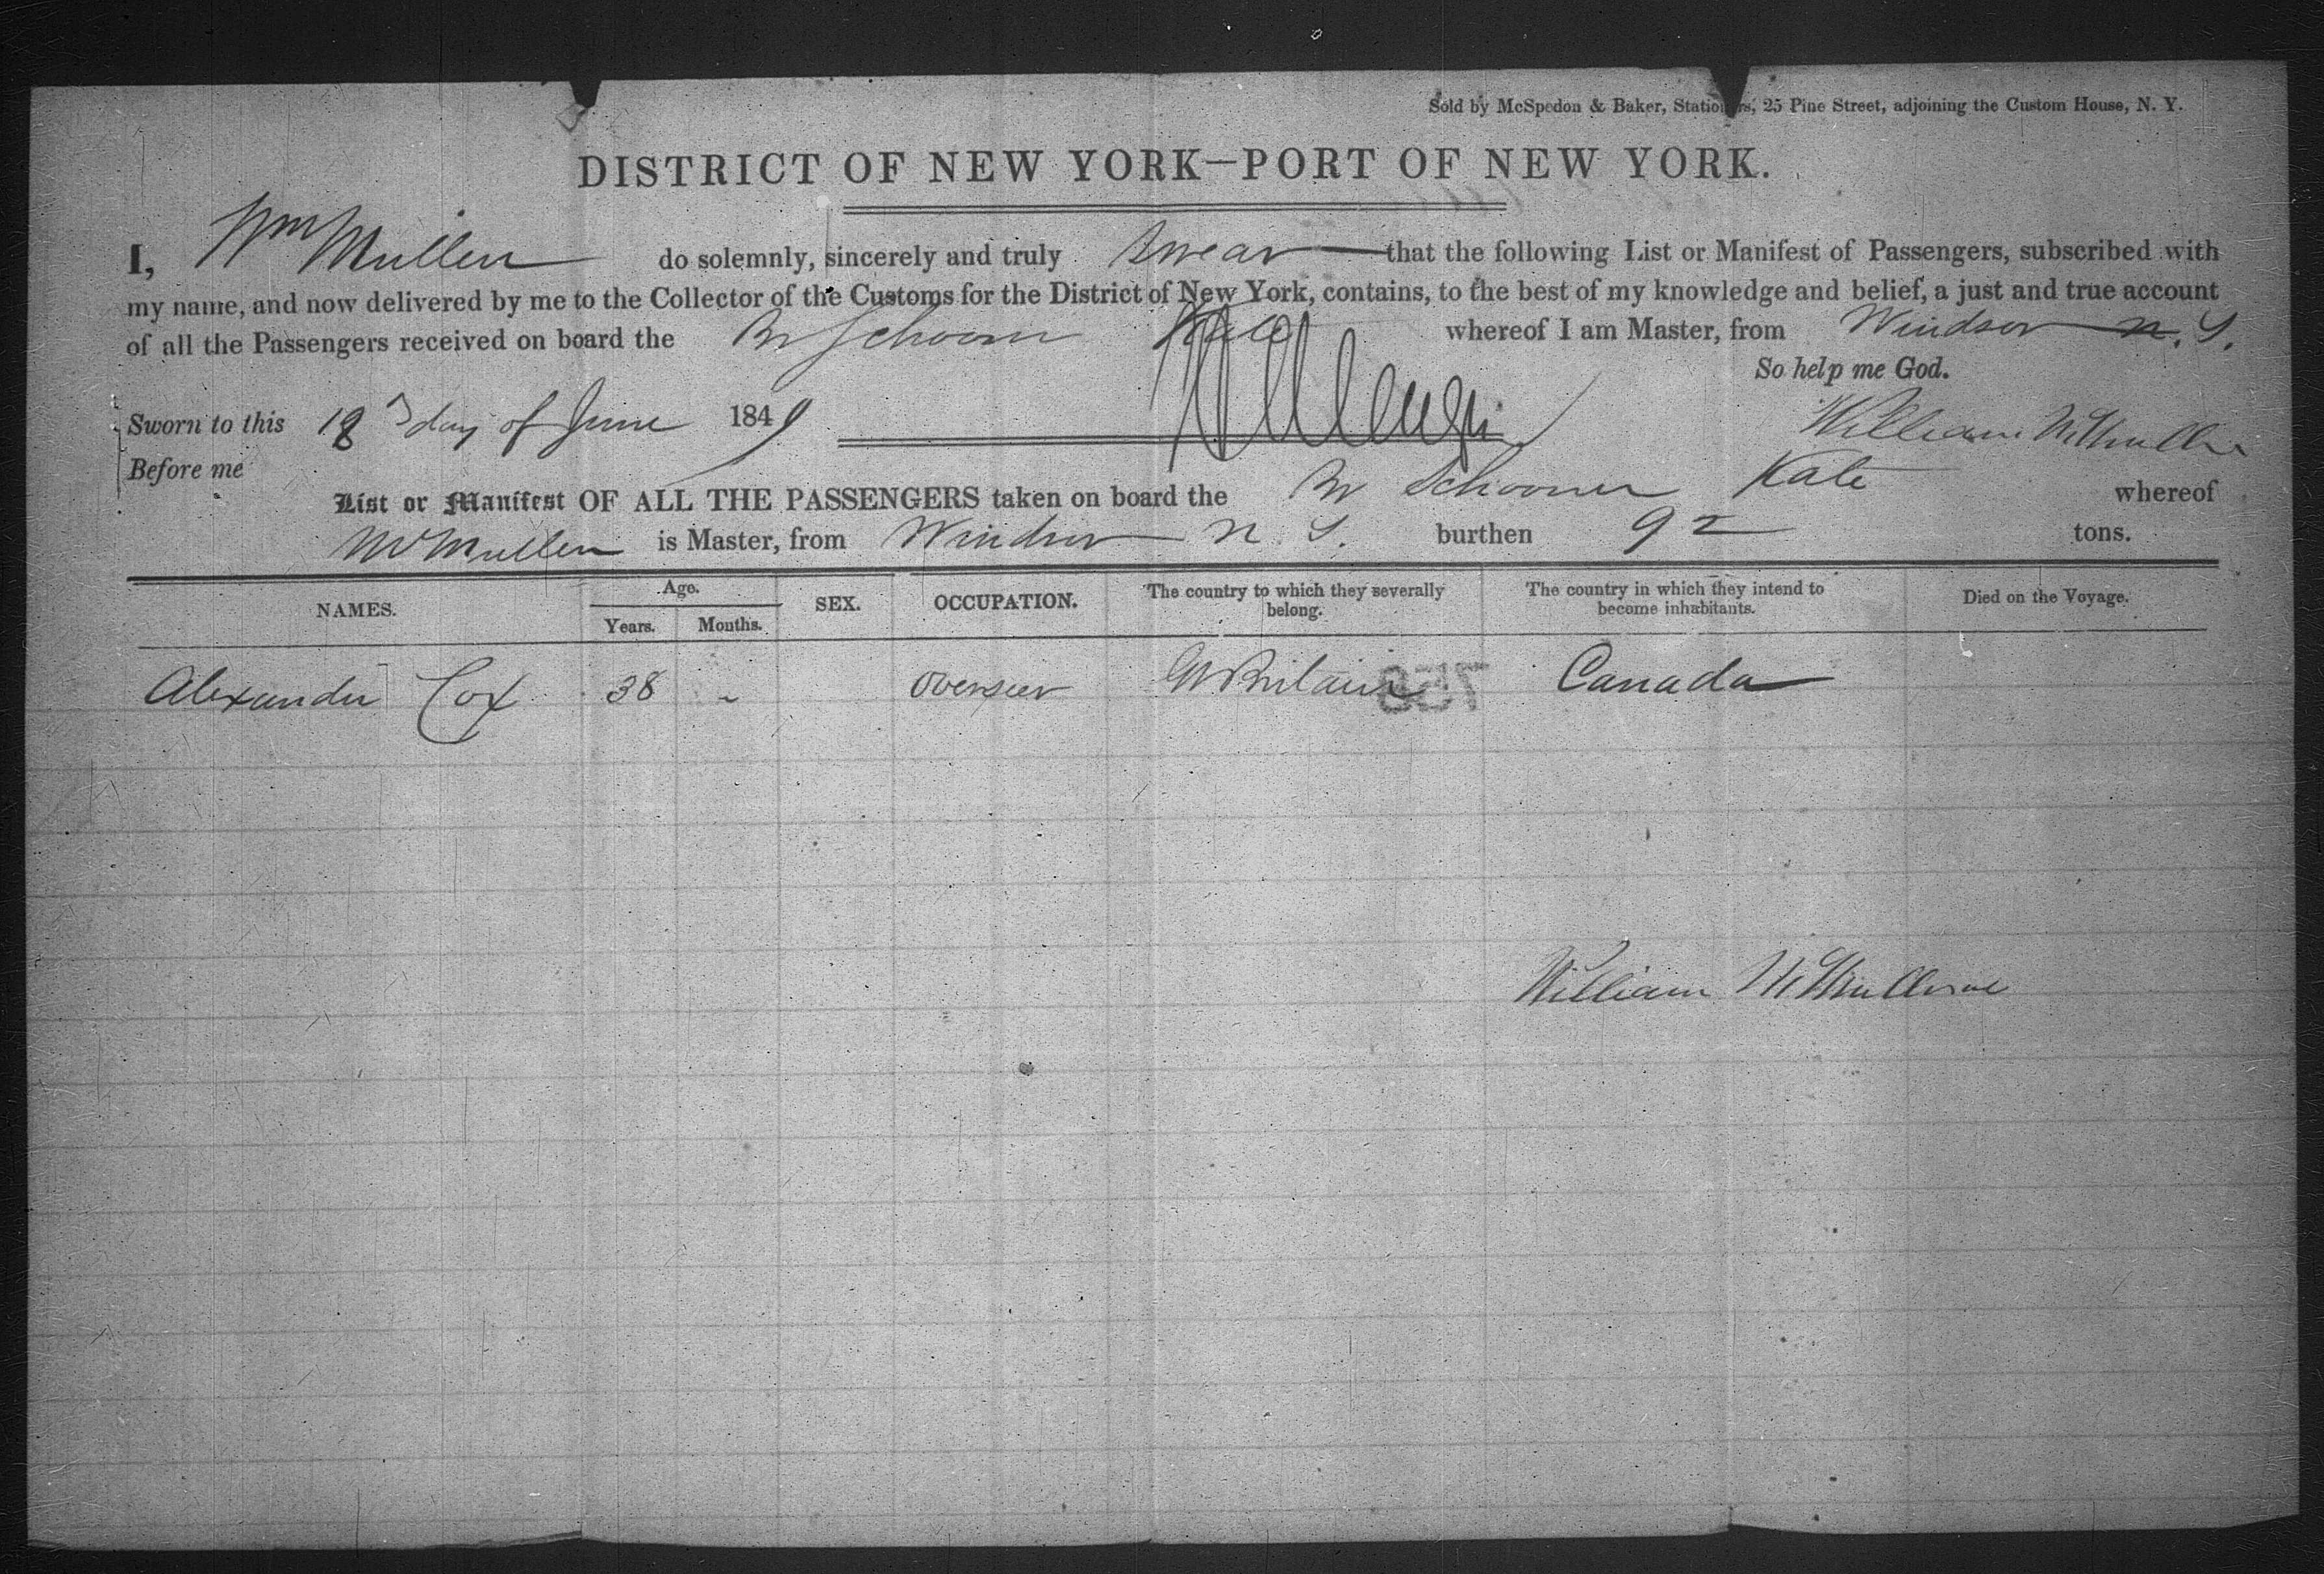 Sold by McSpedon & Baker, Stationers, 25 Pine Street, adjoining the Custom House, N. Y.
DISTRICT OF NEW YORK—PORT OF NEW YORK.
I, Wm Mullen do solemnly, sincerely and truly swear that the following List or Manifest of Passengers, subscribed with
my name, and now delivered by me to the Collector of the Customs for the District of New York, contains, to the best of my knowledge and belief, a just and true account
of all the Passengers received on board the Br Schoonr Kate whereof I am Master, from Windsor N. S.
So help me God.
Sworn to this 18 day of June 1849
William McMullen
Before me
List or Manifest OF ALL THE PASSENGERS taken on board the Br Schooner Kate whereof
McMullen is Master, from Windsor N. S. burthen 92 tons.
NAMES. Age. Years. Months. SEX. OCCUPATION. The country to which they severally belong. The country in which they intend to become inhabitants. Died on the Voyage.
Alexander Cox 38 - Overseer Gt Britain Canada
William